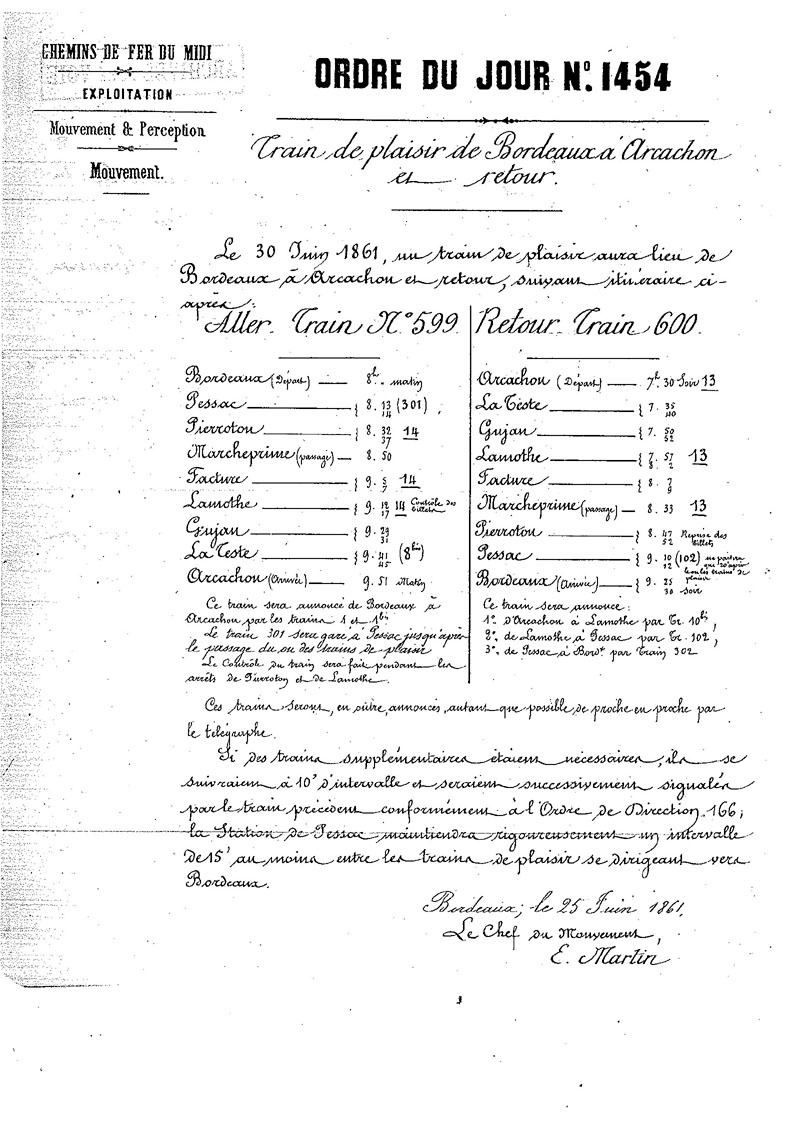 CHEMINS DE FER DU MIDI
EXPLOITATION
Mouvement & Perception
Mouvement.
ORDRE DU JOUR N° 1454
Train de plaisir de Bordeaux à Arcachon
et retour.
Le 30 Juin 1861, un train de plaisir aura lieu de
Bordeaux à Arcachon et retour, suivant itinéraire ci-
après :
Aller. Train N° 599
Bordeaux (Départ) — 8h. " matin
Pessac — 8. 13 14 (301)
Pierroton — 8. 32 37 14
Marcheprime (passage) — 8. 50
Facture — 9. 5 7 14
Lamothe — 9. 12 17 14 Contrôle des billets
Gujan — 9. 29 31
La Teste — 9. 41 45 (8bis)
Arcachon (Arrivée) — 9. 51 Matin
Ce train sera annoncé de Bordeaux à
Arcachon par les trains 1 et 1bis
Le train 301 sera garé à Pessac jusqu'après
le passage du ou des trains de plaisir
Le Contrôle du train sera fait pendant les
arrêts de Pierroton et de Lamothe.
Retour. Train 600.
Arcachon (Départ) — 7h. 30 Soir 13
La Teste — 7. 35 40
Gujan — 7. 50 52
Lamothe — 7. 57 8. 2 13
Facture — 8. 7 9
Marcheprime (passage) — 8. 33 13
Pierroton — 8. 47 52 Reprise des billets
Pessac — 9. 10 12 (102) ne partira que
tous les trains de plaisir
Bordeaux (Arrivée) — 9. 25 30 soir
Ce train sera annoncé :
1° d'Arcachon à Lamothe par Tr. 10bis,
2° de Lamothe à Pessac par Tr. 102,
3° de Pessac à Bordx par Train 302
Ces trains seront, en outre, annoncés, autant que possible, de proche en proche par
le télégraphe.
Si des trains supplémentaires étaient nécessaires, ils se
suivraient à 10' d'intervalle et seraient successivement signalés
par le train précédent conformément à l'Ordre de Direction 166;
la Station de Pessac maintiendra rigoureusement un intervalle
de 15' au moins entre les trains de plaisir se dirigeant vers
Bordeaux.
Bordeaux, le 25 Juin 1861,
Le Chef du Mouvement,
E. Martin